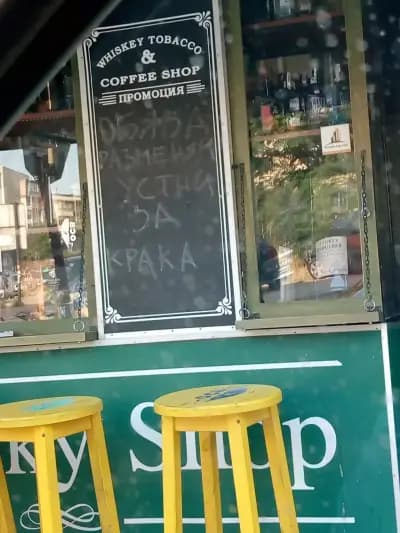 WHISKEY TOBACCO
&
COFFEE SHOP
ПРОМОЦИЯ
ОБЯЗД
РАЗМЕНЯМ
УСТНИ
ЗА
КРАКА
ky Shop